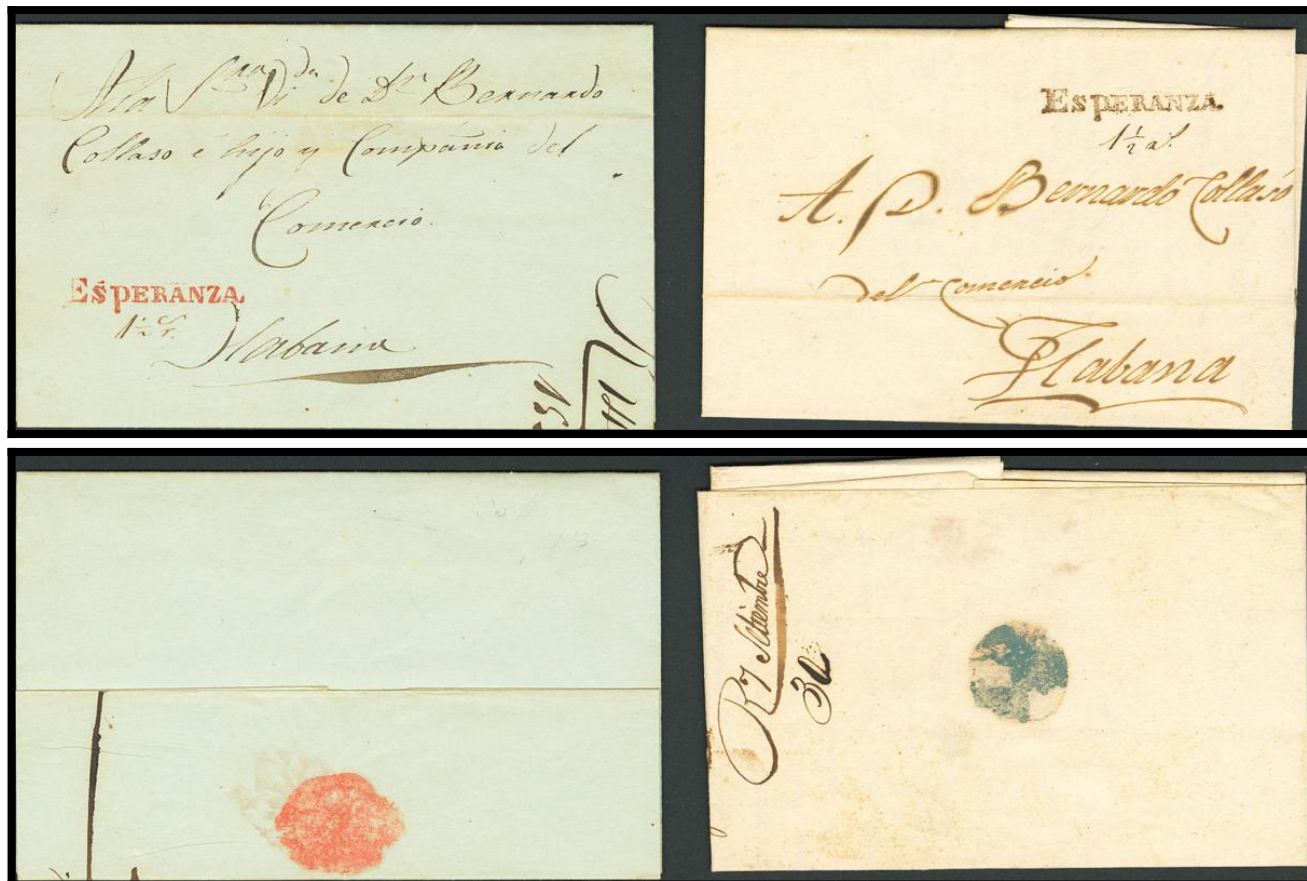 A la S.ra Vi.da de D.n Bernardo
Collaso é hijo y Compañia del
Comercio.
ESPERANZA
1½ r.
Habana
ESPERANZA
1½ a.l
A. D. Bernardo Collaso
del Comercio
Habana
R 7 Setiembre